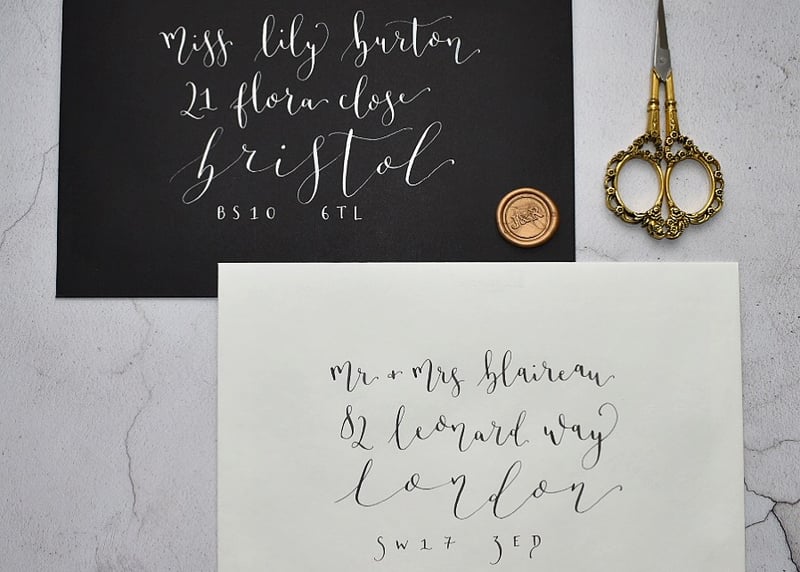 miss lily burton
21 flora close
bristol
BS10 6TL
J&R
mr + mrs blaireau
82 leonard way
london
SW17 3ED